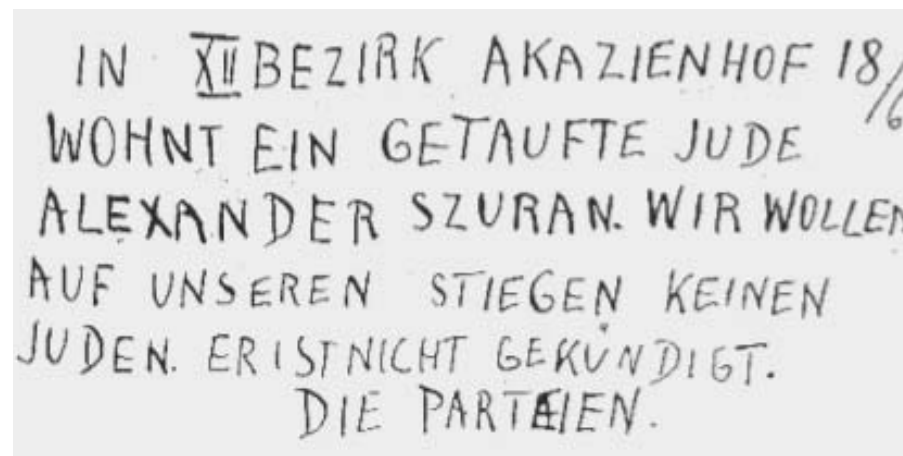 IN XII BEZIRK AKAZIENHOF 18/6
WOHNT EIN GETAUFTE JUDE
ALEXANDER SZURAN. WIR WOLLEN
AUF UNSEREN STIEGEN KEINEN
JUDEN. ER IST NICHT GEKÜNDIGT.
DIE PARTEIEN.